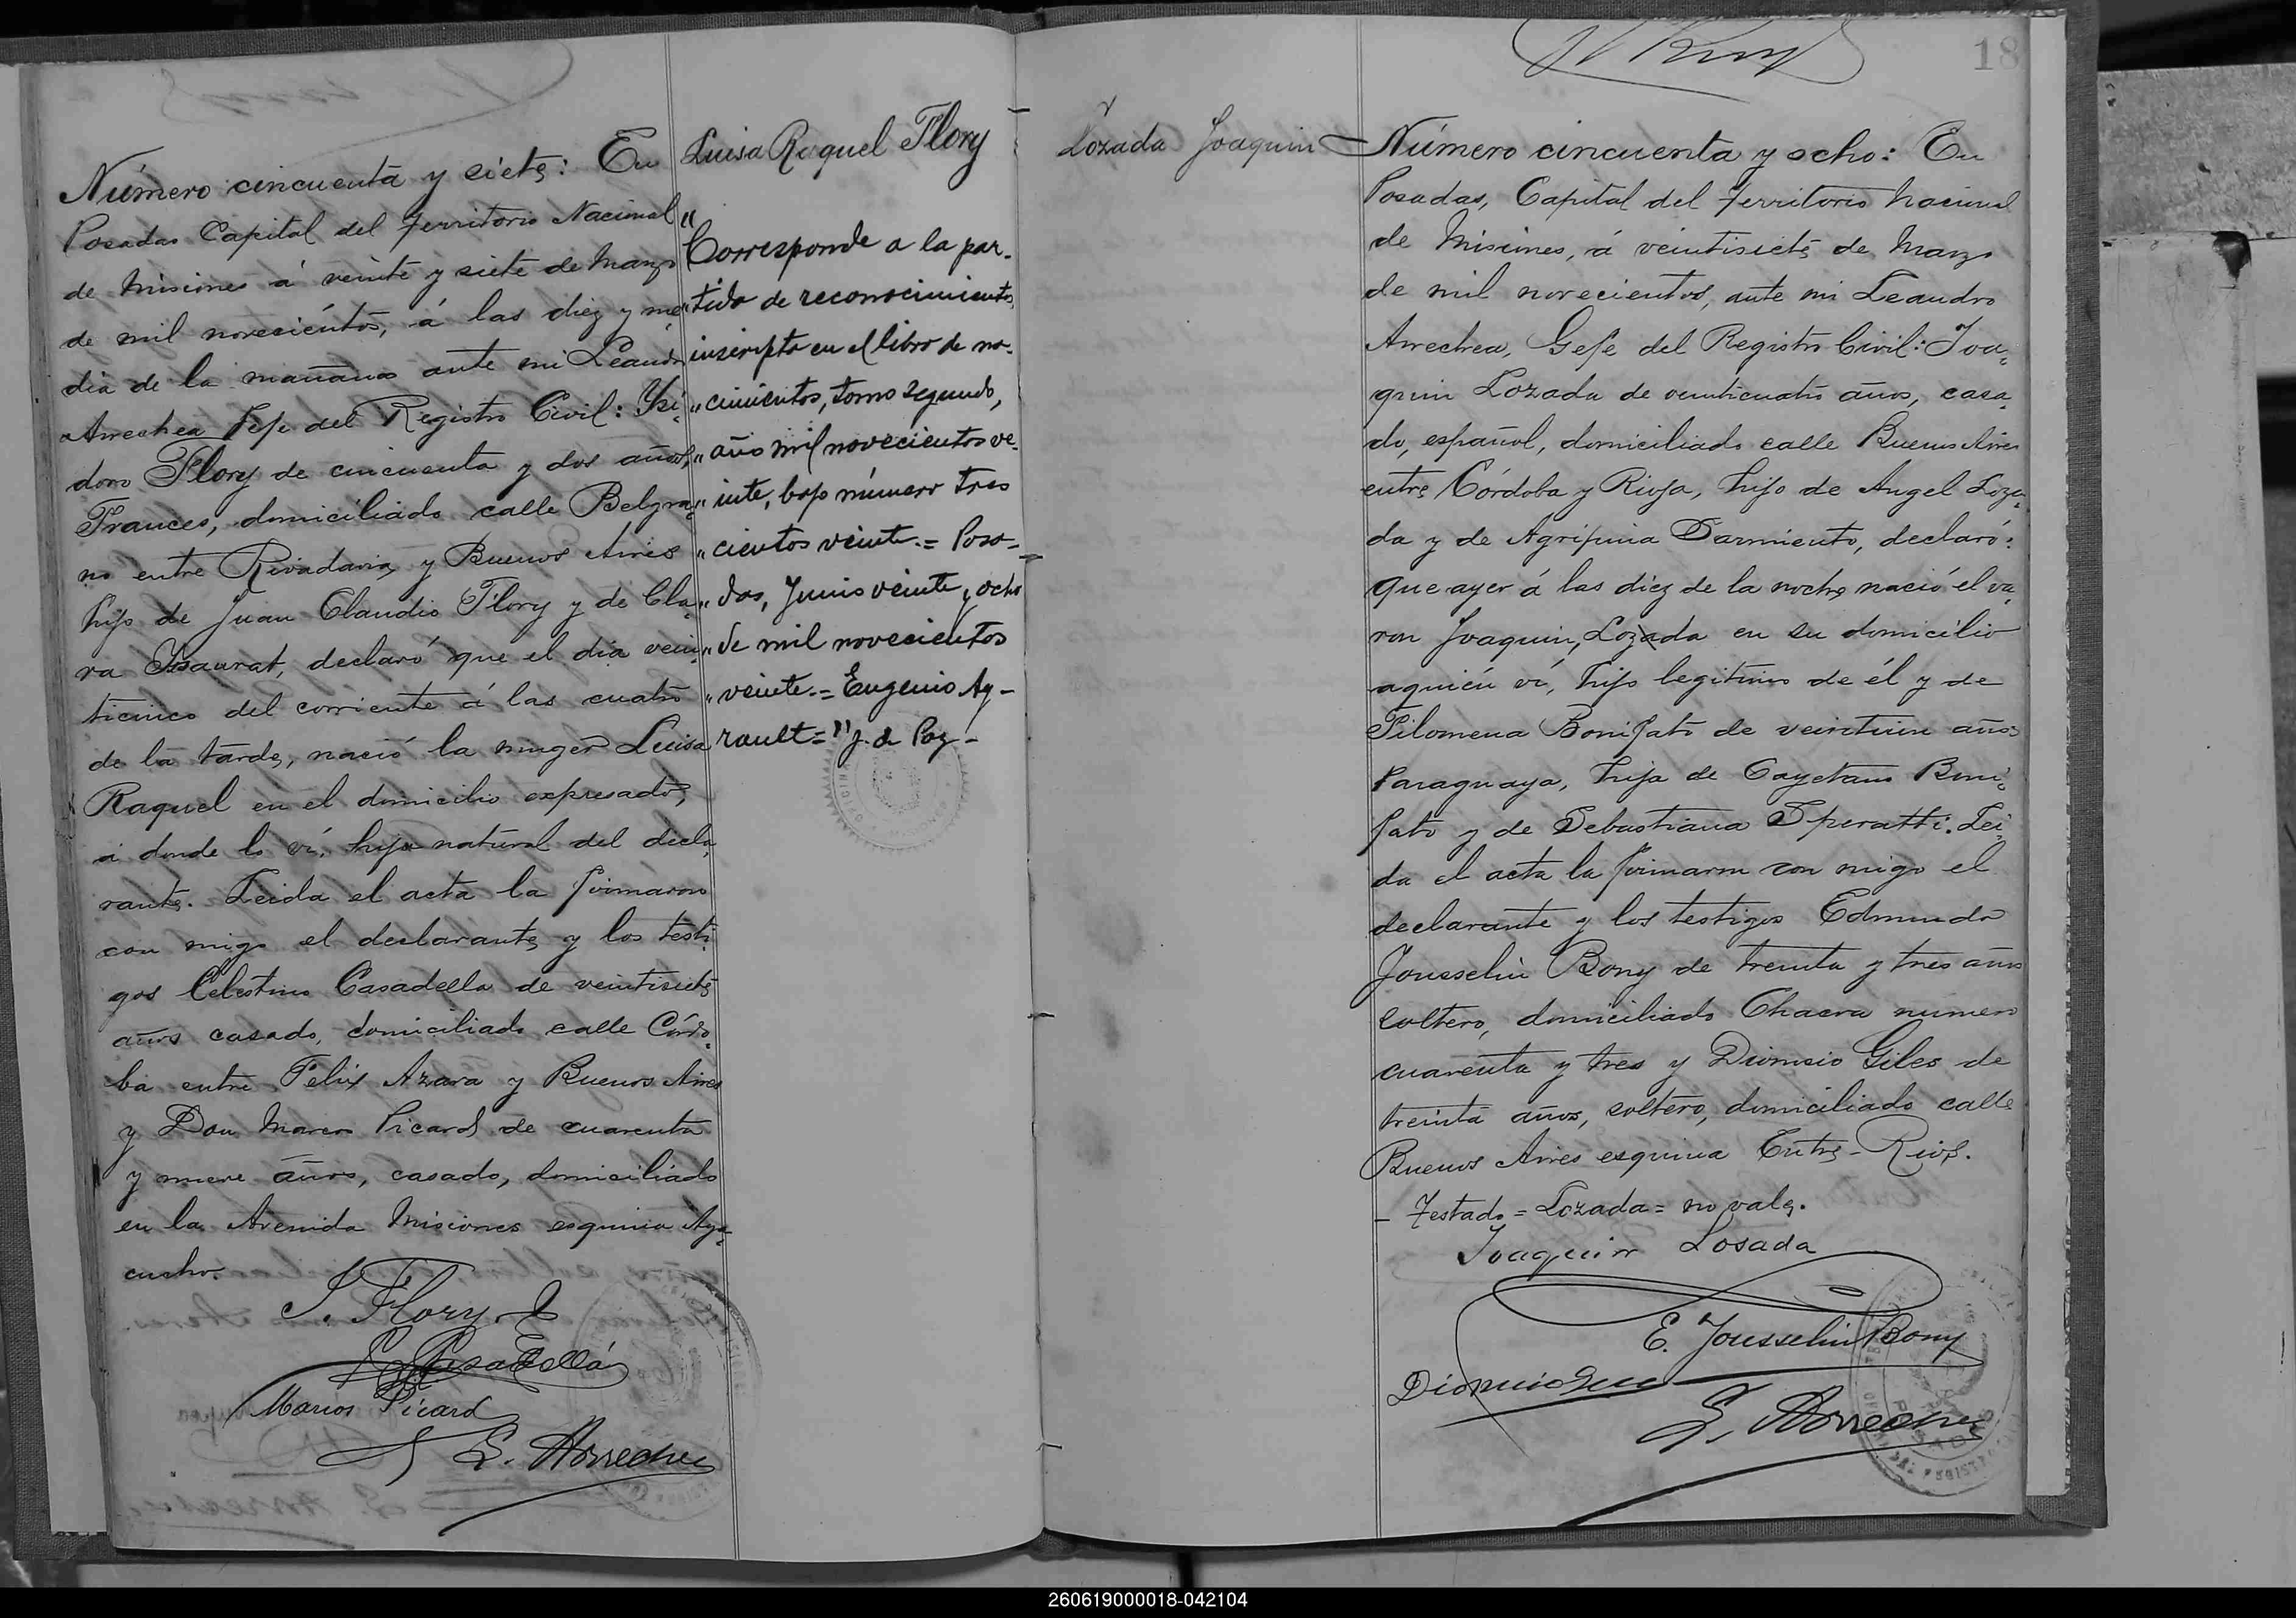 Luisa Raquel Flory
Número cincuenta y siete: En
Posadas Capital del Territorio Nacional
de Misiones á veinte y siete de Marzo
de mil novecientos, á las diez y me
dia de la mañana ante mi Leandro
Arrechea Jefe del Registro Civil: Ysi-
doro Flory de cincuenta y dos años,
Frances, domiciliado calle Belgra-
no entre Rivadavia y Buenos Aires
hijo de Juan Claudio Flory y de Cla-
ra, declaró que el dia vein-
ticinco del corriente á las cuatro
de la tarde, nació la muger Luisa
Raquel en el domicilio expresado,
á donde la ví, hija natural del decla
rante. Leida el acta la firmaron
con migo el declarante y los testi-
gos Celestino Casadella de veintisiete
años casado, domiciliado calle Córdo-
ba entre Felix Azara y Buenos Aires
y Don Marcos Picard de cuarenta
y nueve años, casado, domiciliado
en la Avenida Misiones esquina Aya-
cucho.
I. Flory
C. Casadellá
Marcos Picard
L. Arrechea
"Corresponde a la par-
"tida de reconocimiento,
inscripta en el libro de na-
"cimientos, tomo segundo,
"año mil novecientos ve-
"inte, bajo número tres
"cientos veinte.= Posa-
"das, Junio veinte y ocho
"de mil novecientos
"veinte.= Eugenio Ay-
rault=" J. de Paz-
18
Lozada Joaquin
Número cincuenta y ocho: En
Posadas, Capital del Territorio Nacional
de Misiones, á veintisiete de Marzo
de mil novecientos, ante mi Leandro
Arrechea, Gefe del Registro Civil: Joa-
quin Lozada de veinticuatro años, casa-
do, español, domiciliado calle Buenos Aires
entre Córdoba y Rioja, hijo de Angel Loza-
da y de Agripina Sarmiento, declaró:
que ayer á las diez de la noche nació el va-
ron Joaquin, Lozada en su domicilio
aquién ví, hijo legitimo de él y de
Filomena Bonifato de veintiun años
Paraguaya, hija de Cayetano Boni-
fato y de Sebastiana Speratti. Lei-
da el acta la firmaron con migo el
declarante y los testigos Edmundo
Jousselin Bony de treinta y tres años
soltero, domiciliado Chacra numero
cuarenta y tres y Dionisio Giles de
treinta años, soltero, domiciliado calle
Buenos Aires esquina Entre-Rios.
- Testado = Lozada = no vale.
Joaquin Losada
E. Jousselin Bony
Dionicio
L. Arrechea
260619000018-042104